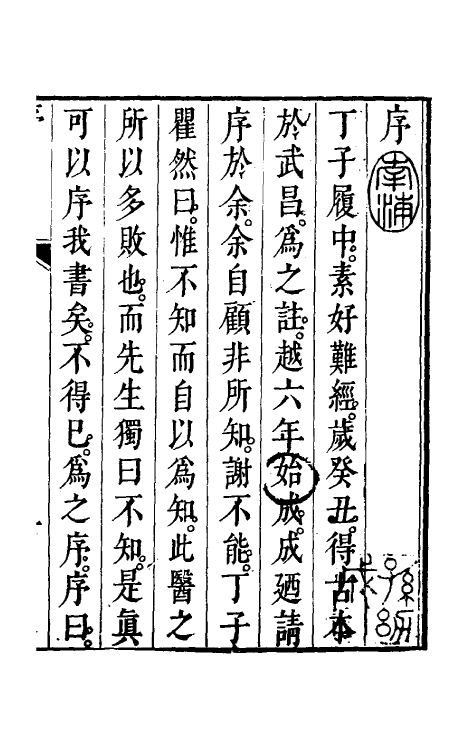 序
丁子履中。素好難經。歲癸丑。得古本
於武昌。爲之註。越六年始成。成廼請
序於余。余自顧非所知。謝不能。丁子
瞿然曰。惟不知而自以爲知。此醫之
所以多敗也。而先生獨曰不知。是眞
可以序我書矣。不得已。爲之序。序曰。